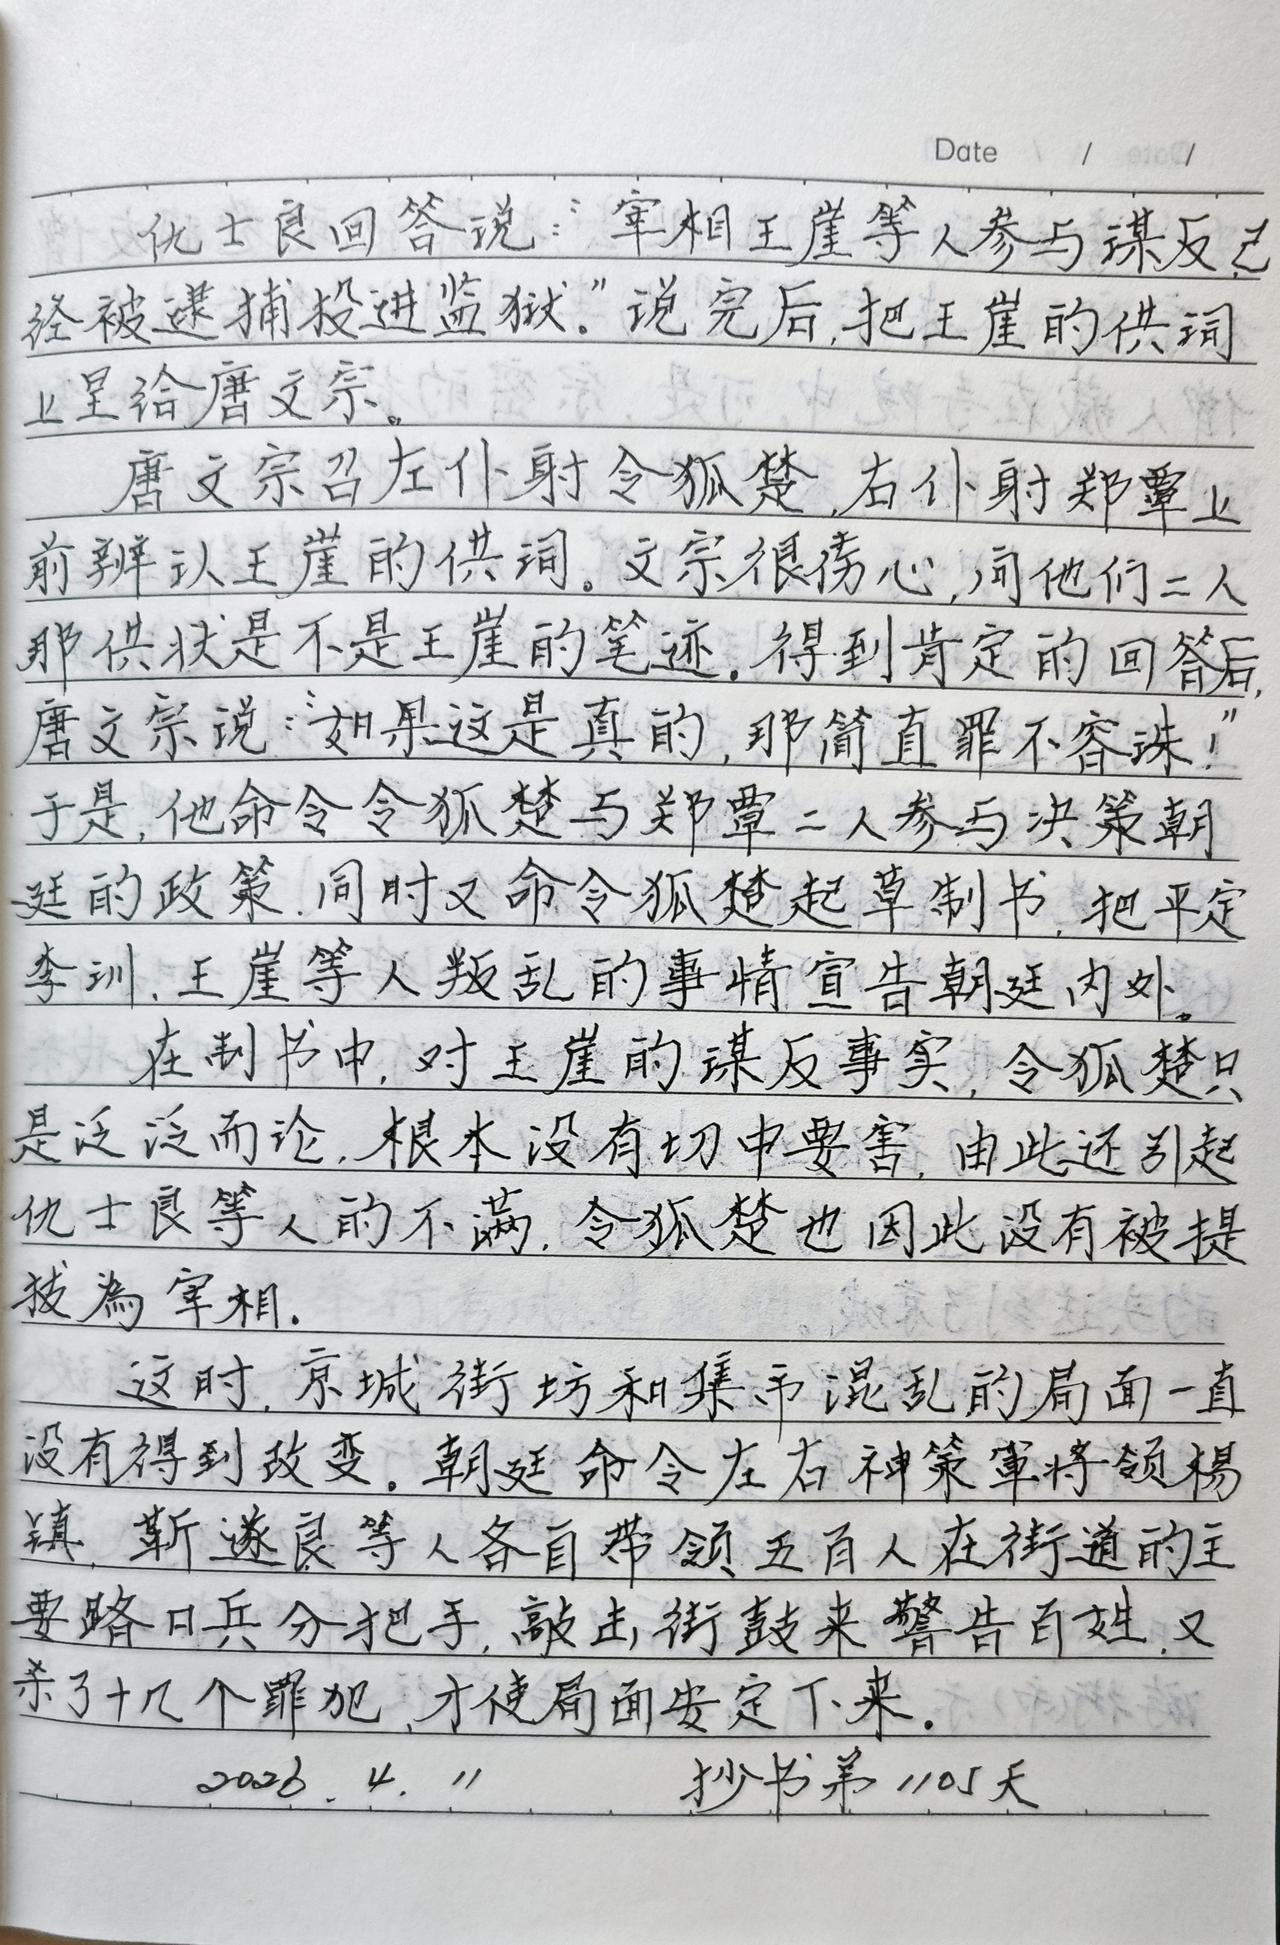 Date / /
仇士良回答说："宰相王崖等人参与谋反，已
经被逮捕投进监狱。"说完后，把王崖的供词
上呈给唐文宗。
唐文宗召左仆射令狐楚，右仆射郑覃上
前辨认王崖的供词。文宗很伤心，问他们二人
那供状是不是王崖的笔迹。得到肯定的回答后，
唐文宗说："如果这是真的，那简直罪不容诛！"
于是，他命令令狐楚与郑覃二人参与决策朝
廷的政策，同时又命令狐楚起草制书，把平定
李训、王崖等人叛乱的事情宣告朝廷内外。
在制书中，对王崖的谋反事实，令狐楚只
是泛泛而论，根本没有切中要害，由此还引起
仇士良等人的不满，令狐楚也因此没有被提
拔為宰相。
这时，京城街坊和集市混乱的局面一直
没有得到改变。朝廷命令左右神策軍将领楊
镇、靳遂良等人各自带领五百人在街道的主
要路口兵分把手，敲击街鼓来警告百姓，又
杀了十几个罪犯，才使局面安定下来。
2026.4.11 抄书第1105天